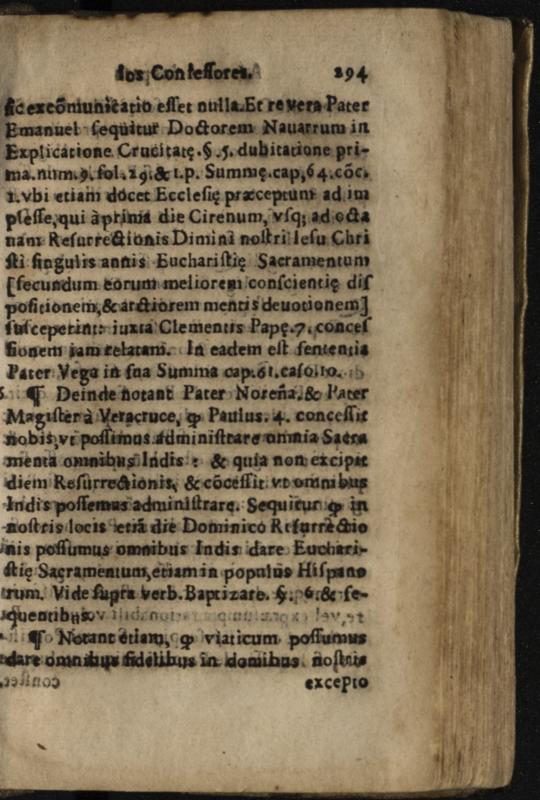 los Confessores. 294
sic excõmunicatio esset nulla. Et re vera Pater
Emanuel sequitur Doctorem Nauarrum in
Explicatione Cruciatę. §. 5. dubitatione pri-
ma. num. 9. fol. 29. & 1. p. Summę. cap, 64. cõc.
1. vbi etiam docet Ecclesię præceptum ad im
plesse, qui à prima die Cinerum, vsq; ad octa
nam Resurrectionis Dimini nostri Iesu Chri
sti singulis annis Eucharistię Sacramentum
[secundum eorum meliorem conscientię dis
positionem, & arctiorem mentis deuotionem]
susceperint: iuxta Clementis Papę. 7. conces
sionem iam relatam. In eadem est sententia
Pater Vega in sua Summa cap. 61. caso. 10.
¶ Deinde notant Pater Noreña. & Pater
Magister à Veracruce, ꝙ Paulus. 4. concessit
nobis, vt possimus administrare omnia Sacra
menta omnibus Indis: & quia non excipit
diem Resurrectionis, & cõcessit vt omnibus
Indis possemus administrare. Sequitur ꝙ in
nostris locis etiã die Dominico Resurrectio
nis possumus omnibus Indis dare Euchari-
stię Sacramentum, etiam in populus Hispano
rum. Vide supra verb. Baptizare. §. 6. & se-
quentibus.
¶ Notant etiam, ꝙ viaticum possumus
dare omnibus fidelibus in domibus nostris
excepto